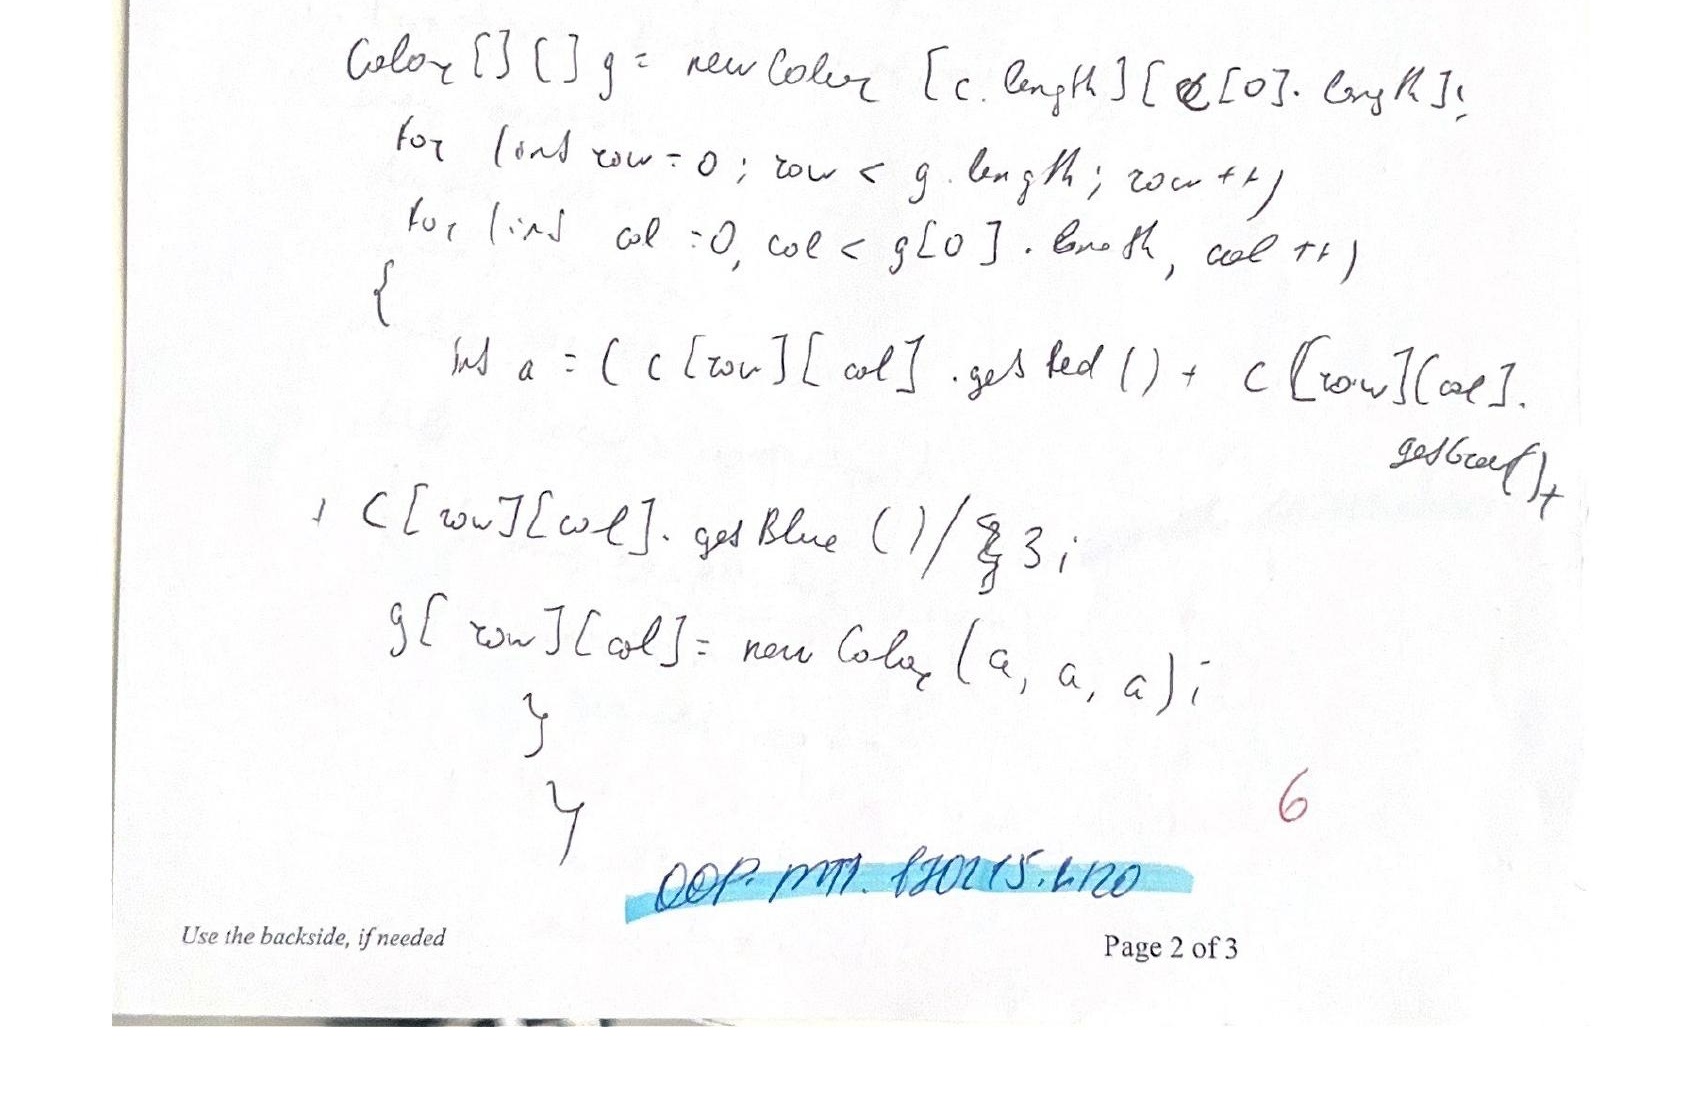 Color [] [] g = new Color [c.length][c[0].length];
for (int row = 0; row < g.length; row++)
for (int col = 0, col < g[0].length, col++)
{
int a = (c[row][col].getRed() + c[row][col].
getGreen() +
+ c[row][col].getBlue()/3;
g[row][col] = new Color(a, a, a);
}
}
6
OOP. MT1.
Use the backside, if needed
Page 2 of 3